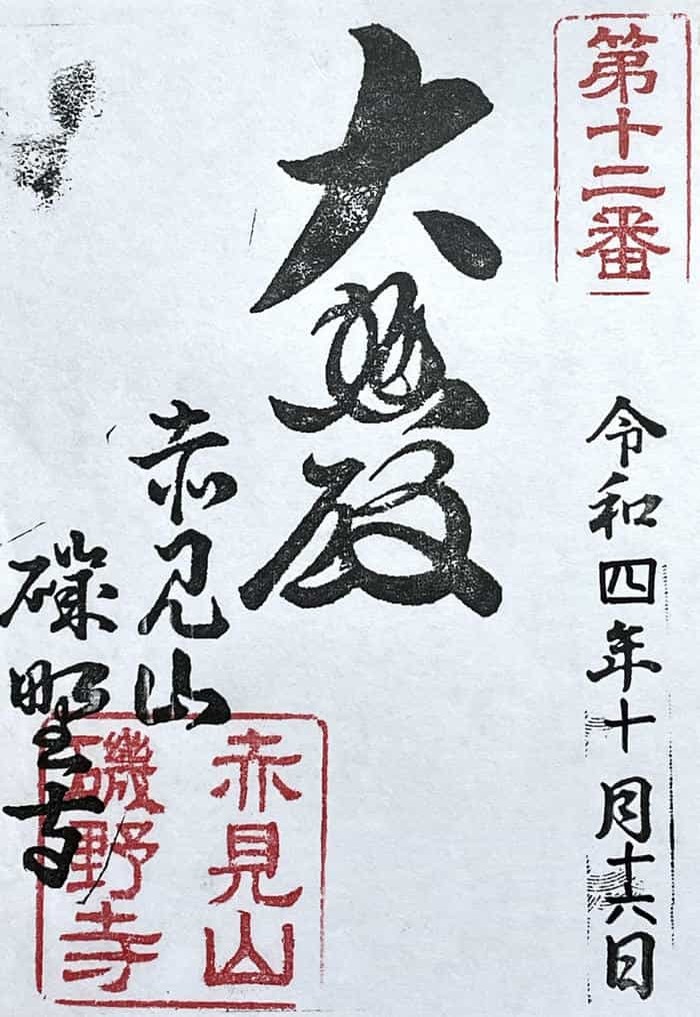 第十二番
令和四年十月十六日
大悲殿
赤見山
磯野寺
赤見山
磯野寺